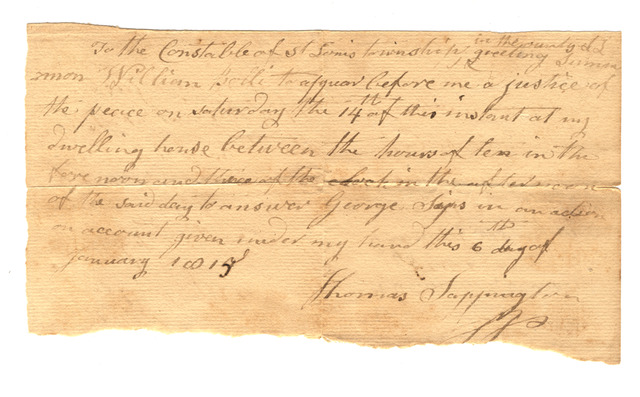 To the Constable of St Louis township in the county
greeting Summon
mon William to appear before me a justice of
the peace on saturday the 14th of this instant at my
dwelling house between the hours of ten in the
forenoon and three of the clock in the afternoon
of the said day to answer George Sips in an action
on account given under my hand this 6th day of
January 1815
Thomas Sappington
JP